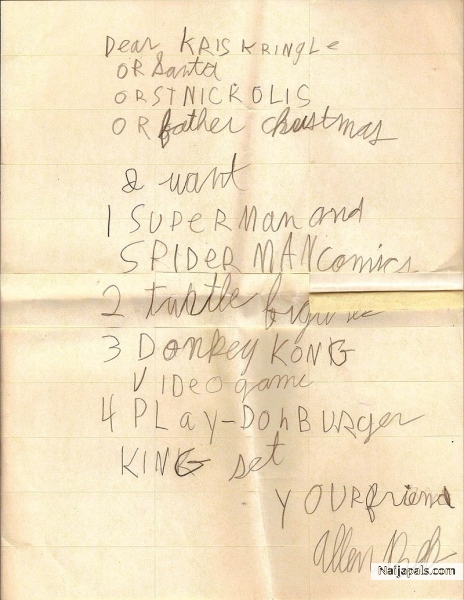 Dear KRIS KRINGLe
OR Santa
OR ST NICKOLIS
OR father christmas
I want
1 SUPeRMan and
SPIDeR MAN comics
2 turtle
3 Donkey KONG
VIDeo game
4 PLay-Doh BURger
KING set
YOUR friend
Allen
Naijapals.com